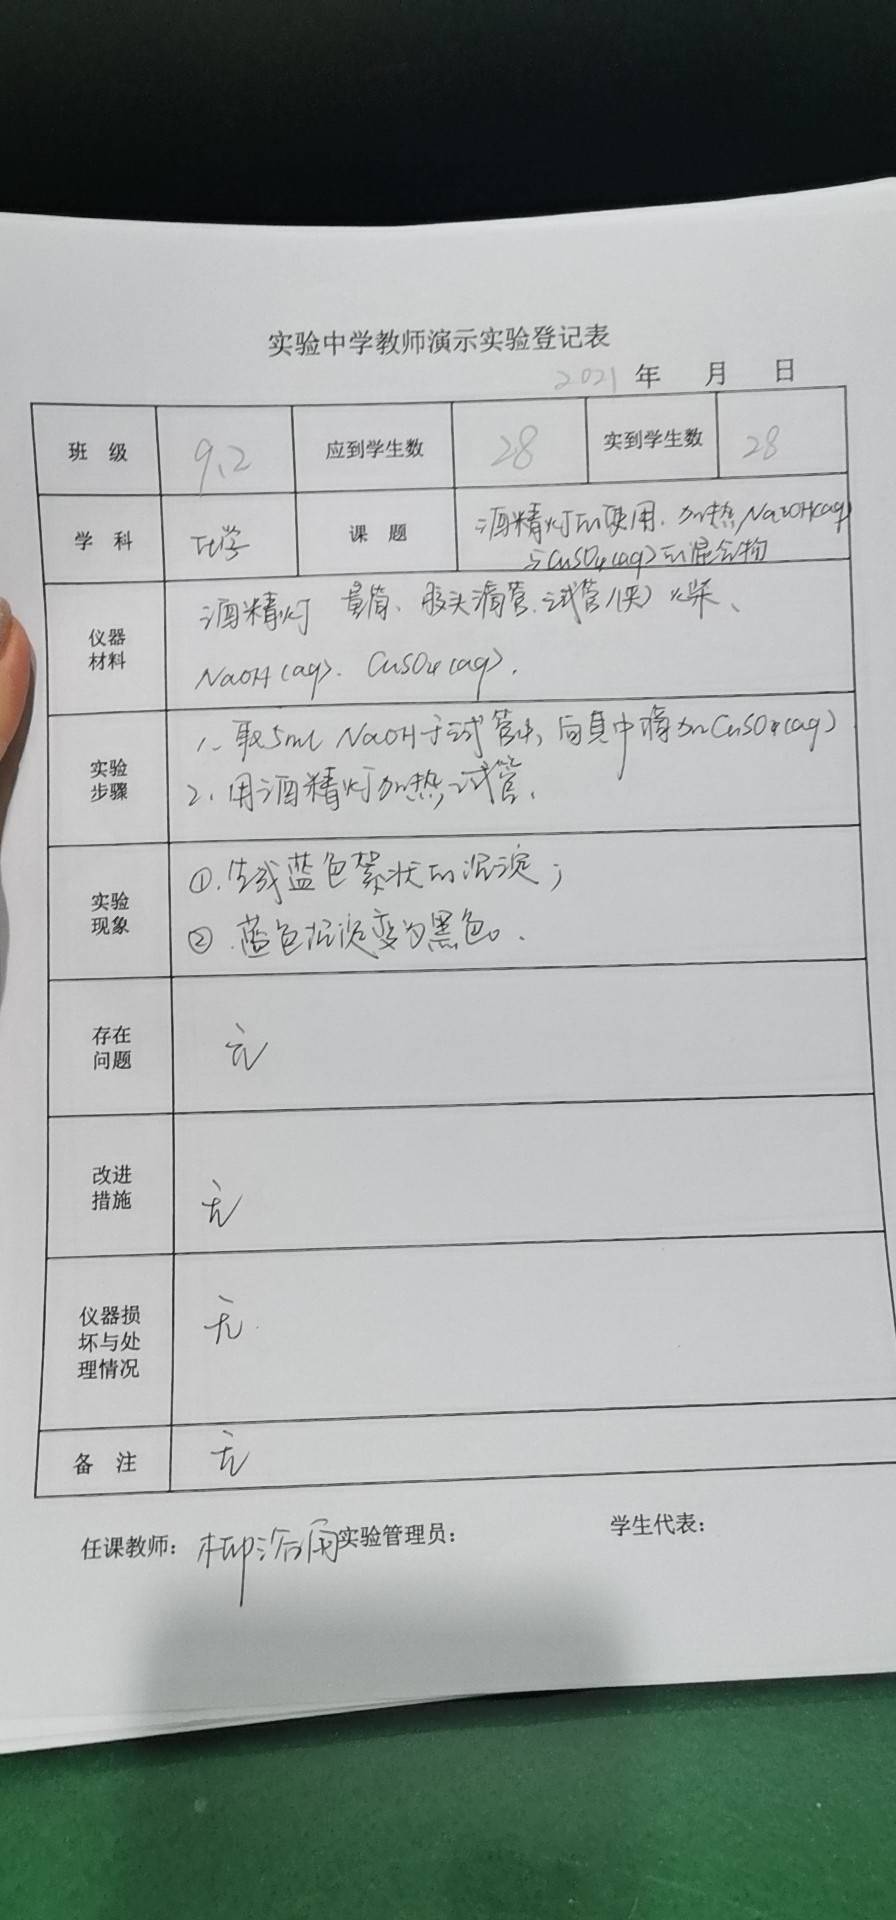 实验中学教师演示实验登记表
2021 年 月 日
班 级 9.2 应到学生数 28 实到学生数 28
学 科 化学 课 题 酒精灯的使用、加热NaOH(aq)
与CuSO4(aq)的混合物
仪器
材料
酒精灯 量筒、胶头滴管、试管(夹) 火柴、
NaOH(aq). CuSO4(aq).
实验
步骤
1、取5mL NaOH于试管中, 向其中滴加CuSO4(aq)
2、用酒精灯加热试管.
实验
现象
①.生成蓝色絮状的沉淀;
② .蓝色沉淀变为黑色。.
存在
问题
无
改进
措施
无
仪器损
坏与处
理情况
无.
备 注 无
任课教师: 实验管理员: 学生代表: